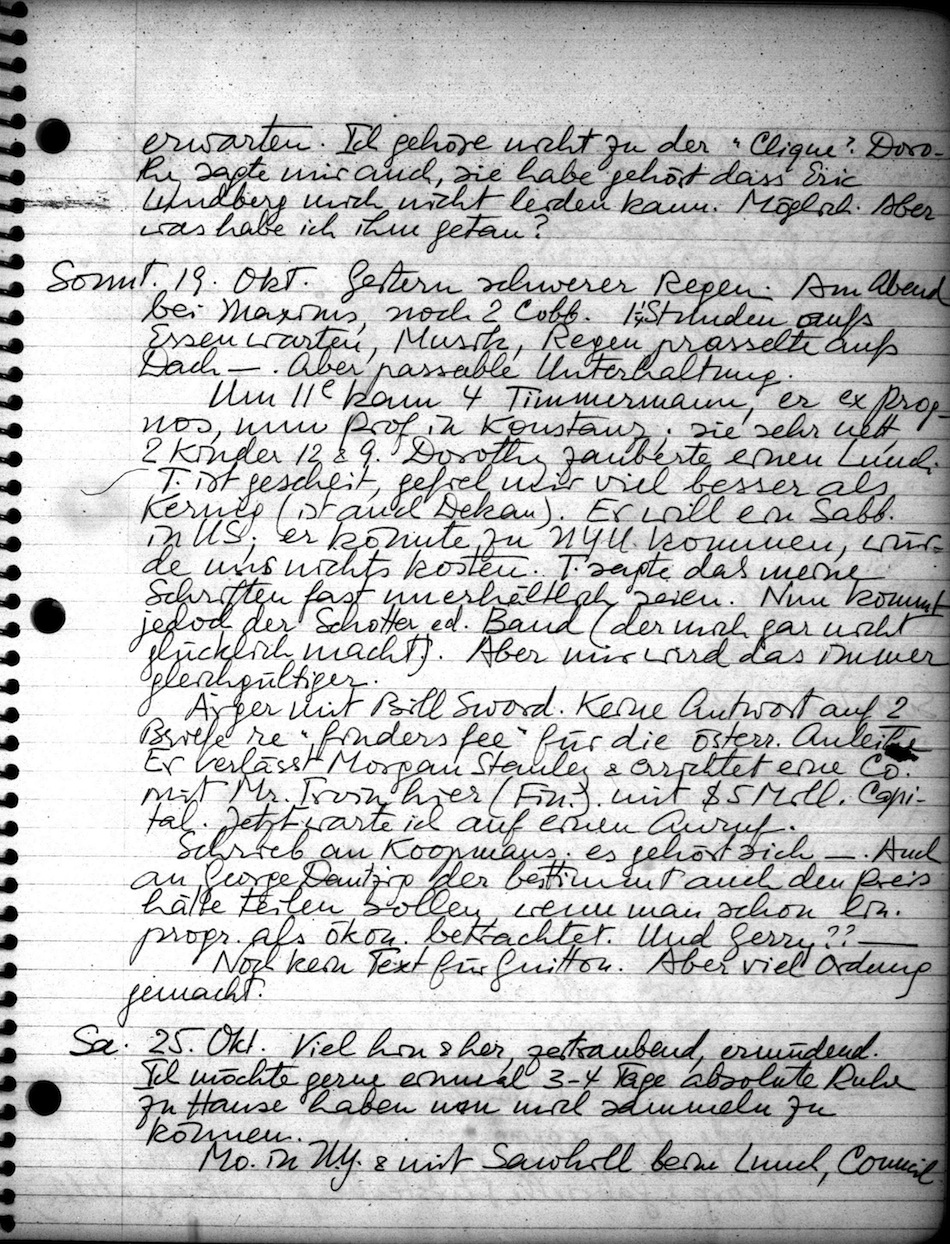 erwarten. Ich gehöre nicht zu der "Clique". Doro-
thy sagte mir auch, sie habe gehört dass Eric
Lundberg mich nicht leiden kann. Möglich. Aber
was habe ich ihm getan?
Sonnt. 19. Okt. Gestern schwerer Regen. Am Abend
bei Maxims, noch 2 Cobb. 1½ Stunden aufs
Essen warten, Musik, Regen prasselte aufs
Dach —. Aber passable Unterhaltung.
Um 11e kam 4 Timmermann, er ex Prog
nos, nun Prof in Konstanz; sie sehr nett,
2 Kinder 12 & 9. Dorothy zauberte einen Lunch.
T. ist gescheit, gefiel mir viel besser als
(ist auch Dekan). Er will ein Sabb.
in US; er könnte zu NYU kommen, wür-
de uns nichts kosten. T. sagte das meine
Schriften fast unerhältlich seien. Nun kommt
jedoch der Schotter ed. Band (der mich gar nicht
glücklich macht). Aber mir wird das immer
gleichgültiger.
Ärger mit Bill Sword. Keine Antwort auf 2
Briefe re "finders fee" für die österr. Anleihe
Er verlässt Morgan Stanley & errichtet eine Co.
mit Mr. Irvin hier (Fin.) mit $5 Mill. Capi-
tal. Jetzt warte ich auf einen Anruf.
Schrieb an Koopmans; es gehört sich —. Auch
an George Dantzig der bestimmt auch den Preis
hätte teilen sollen, wenn man schon lin.
progr. als ökon. betrachtet. Und Gerry?? —
Noch kein Text für Guitton. Aber viel Ordnung
gemacht.
Sa. 25. Okt. Viel hin & her, zeitraubend, ermüdend.
Ich möchte gerne einmal 3-4 Tage absolute Ruhe
zu Hause haben um mich sammeln zu
können.
Mo. in N.Y. & mit Sawhill beim Lunch, Council